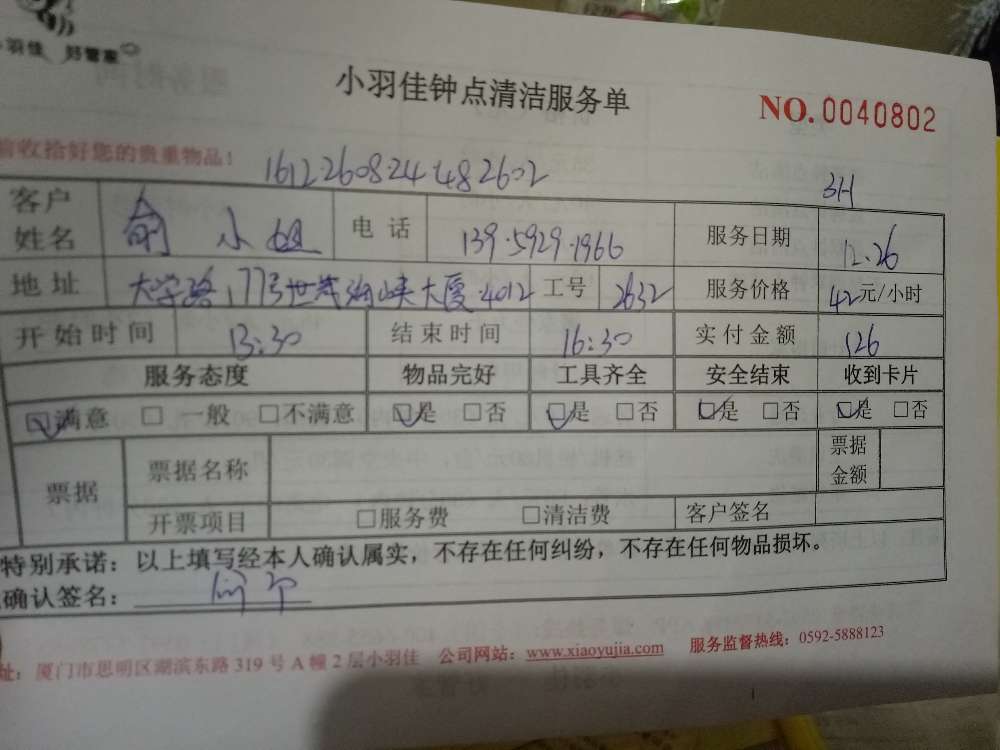 小羽佳 好管家
小羽佳钟点清洁服务单
NO.0040802
收拾好您的贵重物品！
1612260824482602
3H
客户姓名 俞小姐 电话 139.5929.1966 服务日期 12.26
地址 大学路177号世茂海峡大厦4012 工号 2632 服务价格 42元/小时
开始时间 13:30 结束时间 16:30 实付金额 126
服务态度 物品完好 工具齐全 安全结束 收到卡片
☑满意 □一般 □不满意 ☑是 □否 ☑是 □否 ☑是 □否 ☑是 □否
票据 票据名称 票据金额
开票项目 □服务费 □清洁费 客户签名
特别承诺：以上填写经本人确认属实，不存在任何纠纷，不存在任何物品损坏。
确认签名：
址：厦门市思明区湖滨东路319号A幢2层小羽佳 公司网站：www.xiaoyujia.com 服务监督热线：0592-5888123